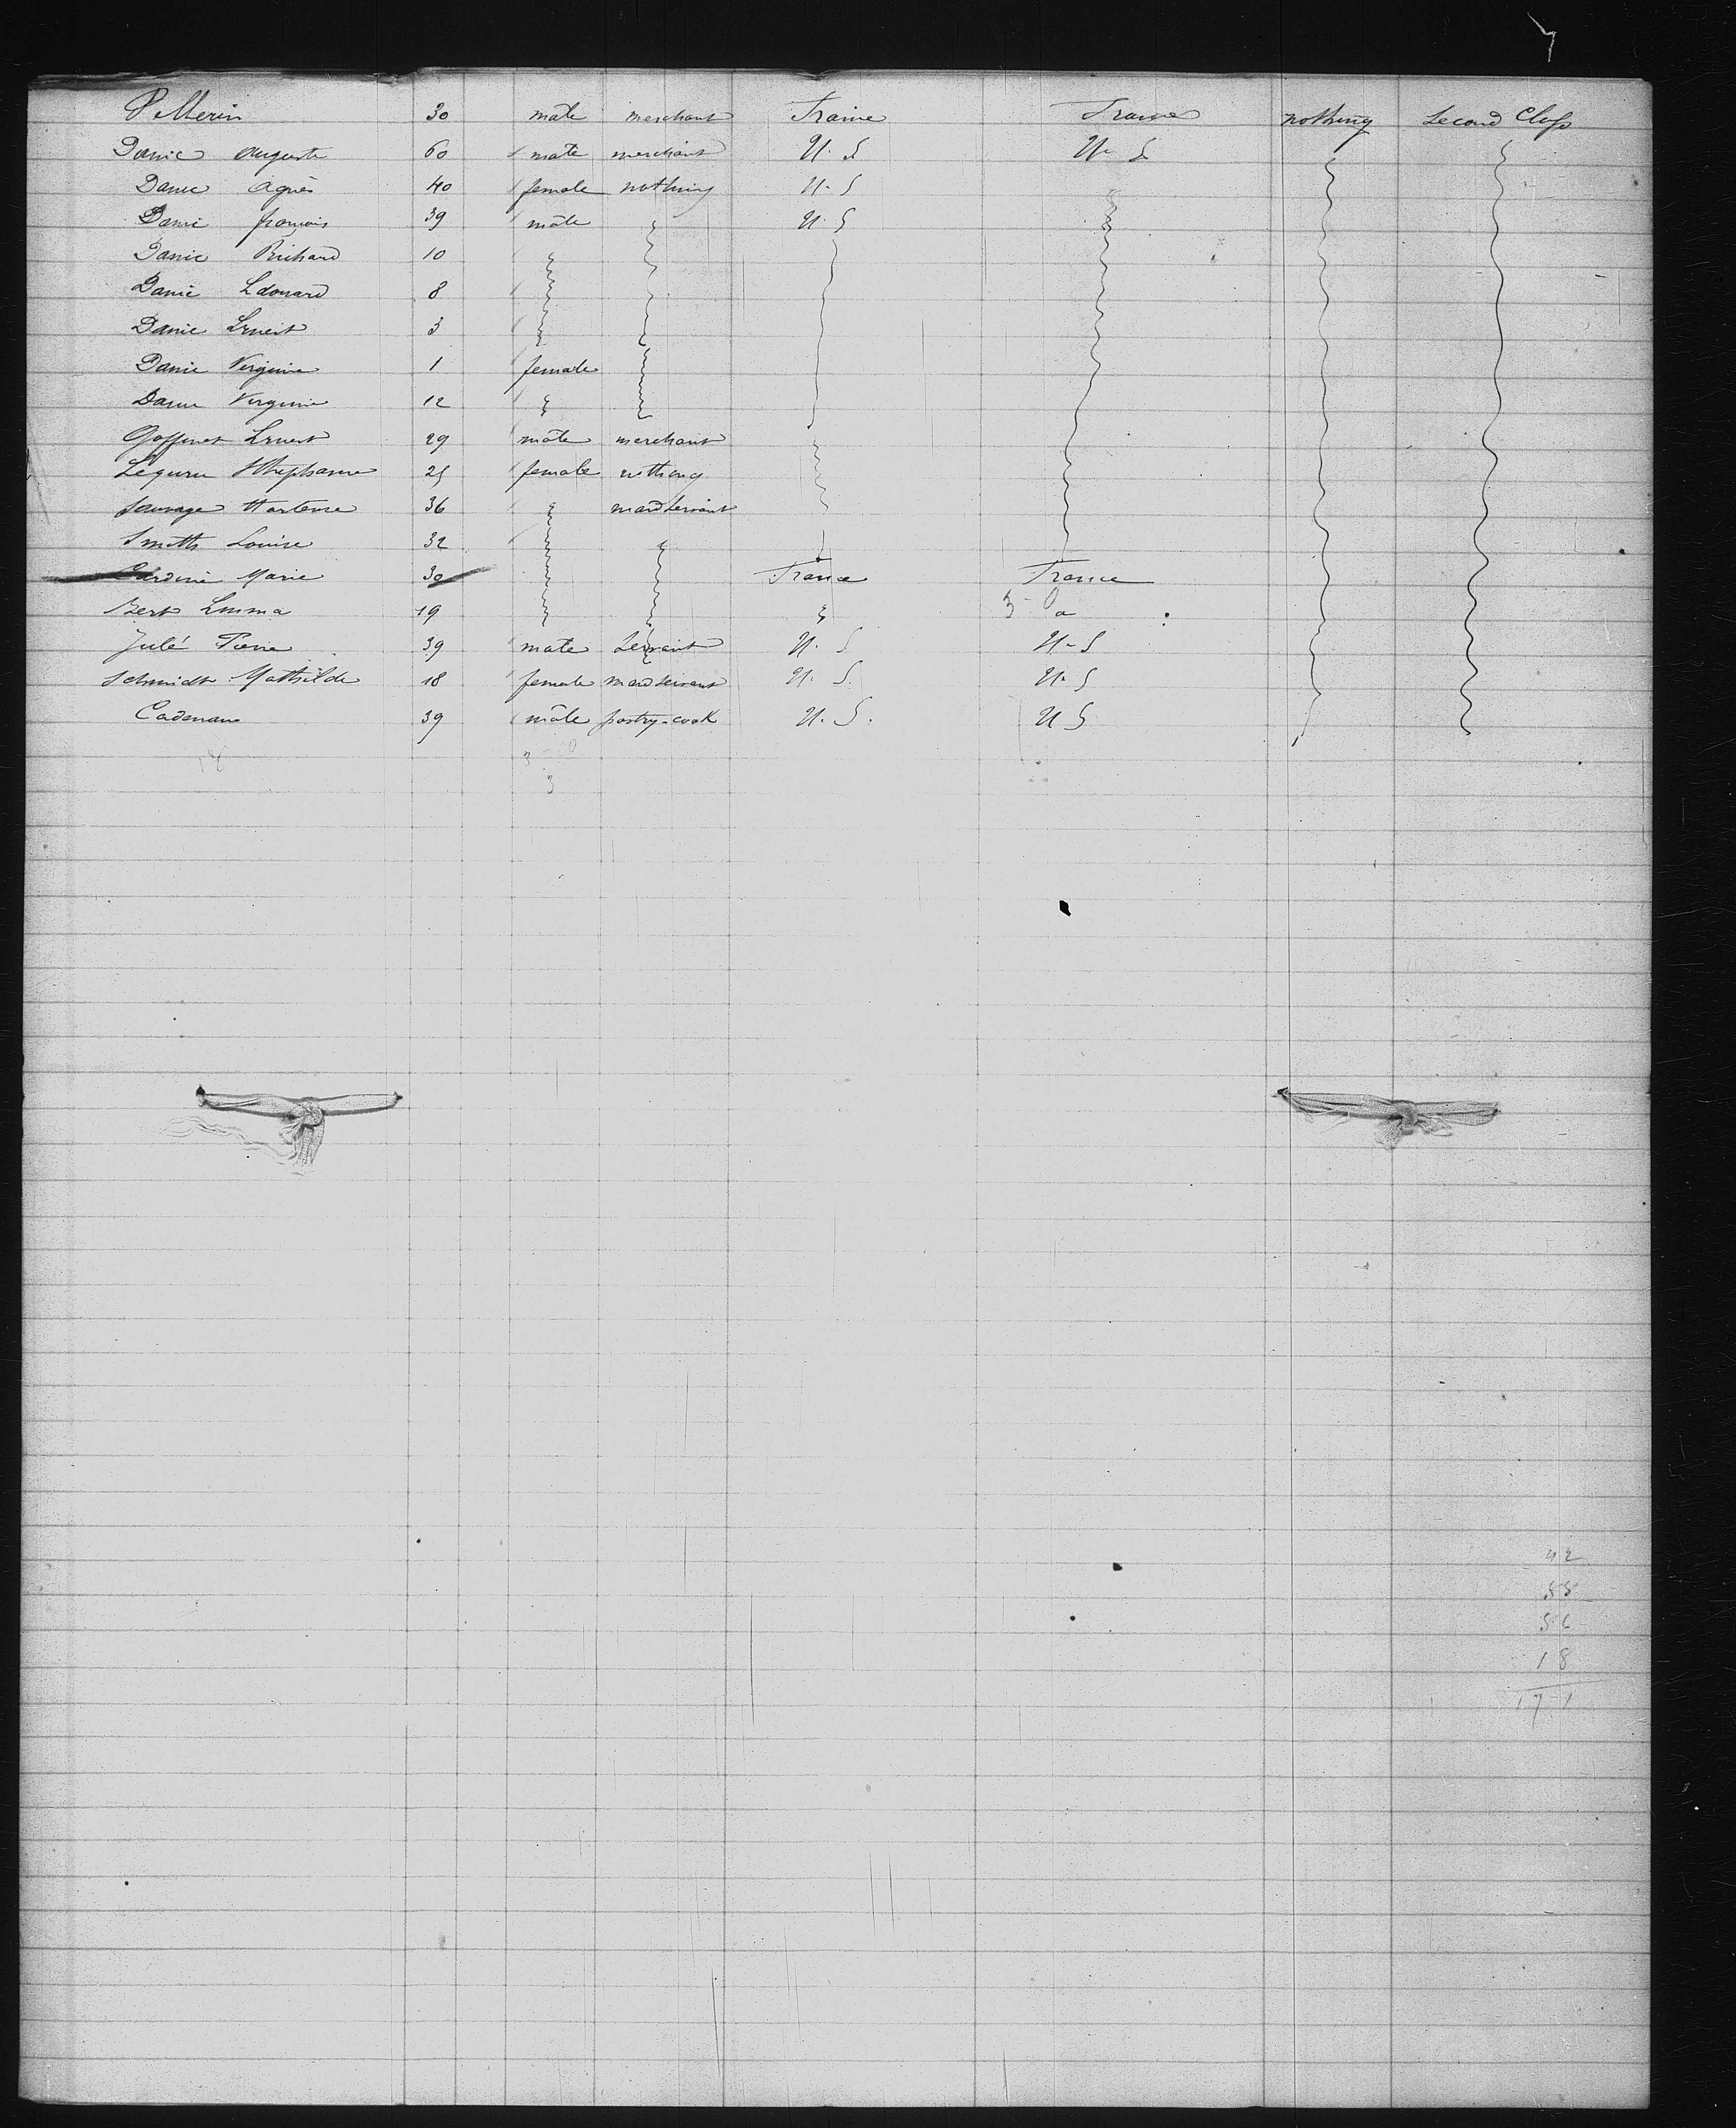 Pellerin 30 mâle merchant France France nothing Second Class
Danic Auguste 60 mâle merchant U. S U. S
Danic Agnès 40 female nothing U. S
Danic françois 39 mâle U. S
Danic Richard 10
Danic Edouard 8
Danic Ernest 3
Danic Virginie 1 female
Danic Virginie 12
Goffinet Ernest 29 mâle merchant
Stéphanie 25 female nothing
Sauvage Hortense 36 maid servant
Smith Louise 32
Marie 30 France France
Bert Emma 19
Julé Pierre 39 male Servant U. S U. S
Schmidt Mathilde 18 female maid servant U. S. U. S
Cadenau 39 mâle pastry-cook U. S. U S
18
3 0
3
42
55
56
18
171